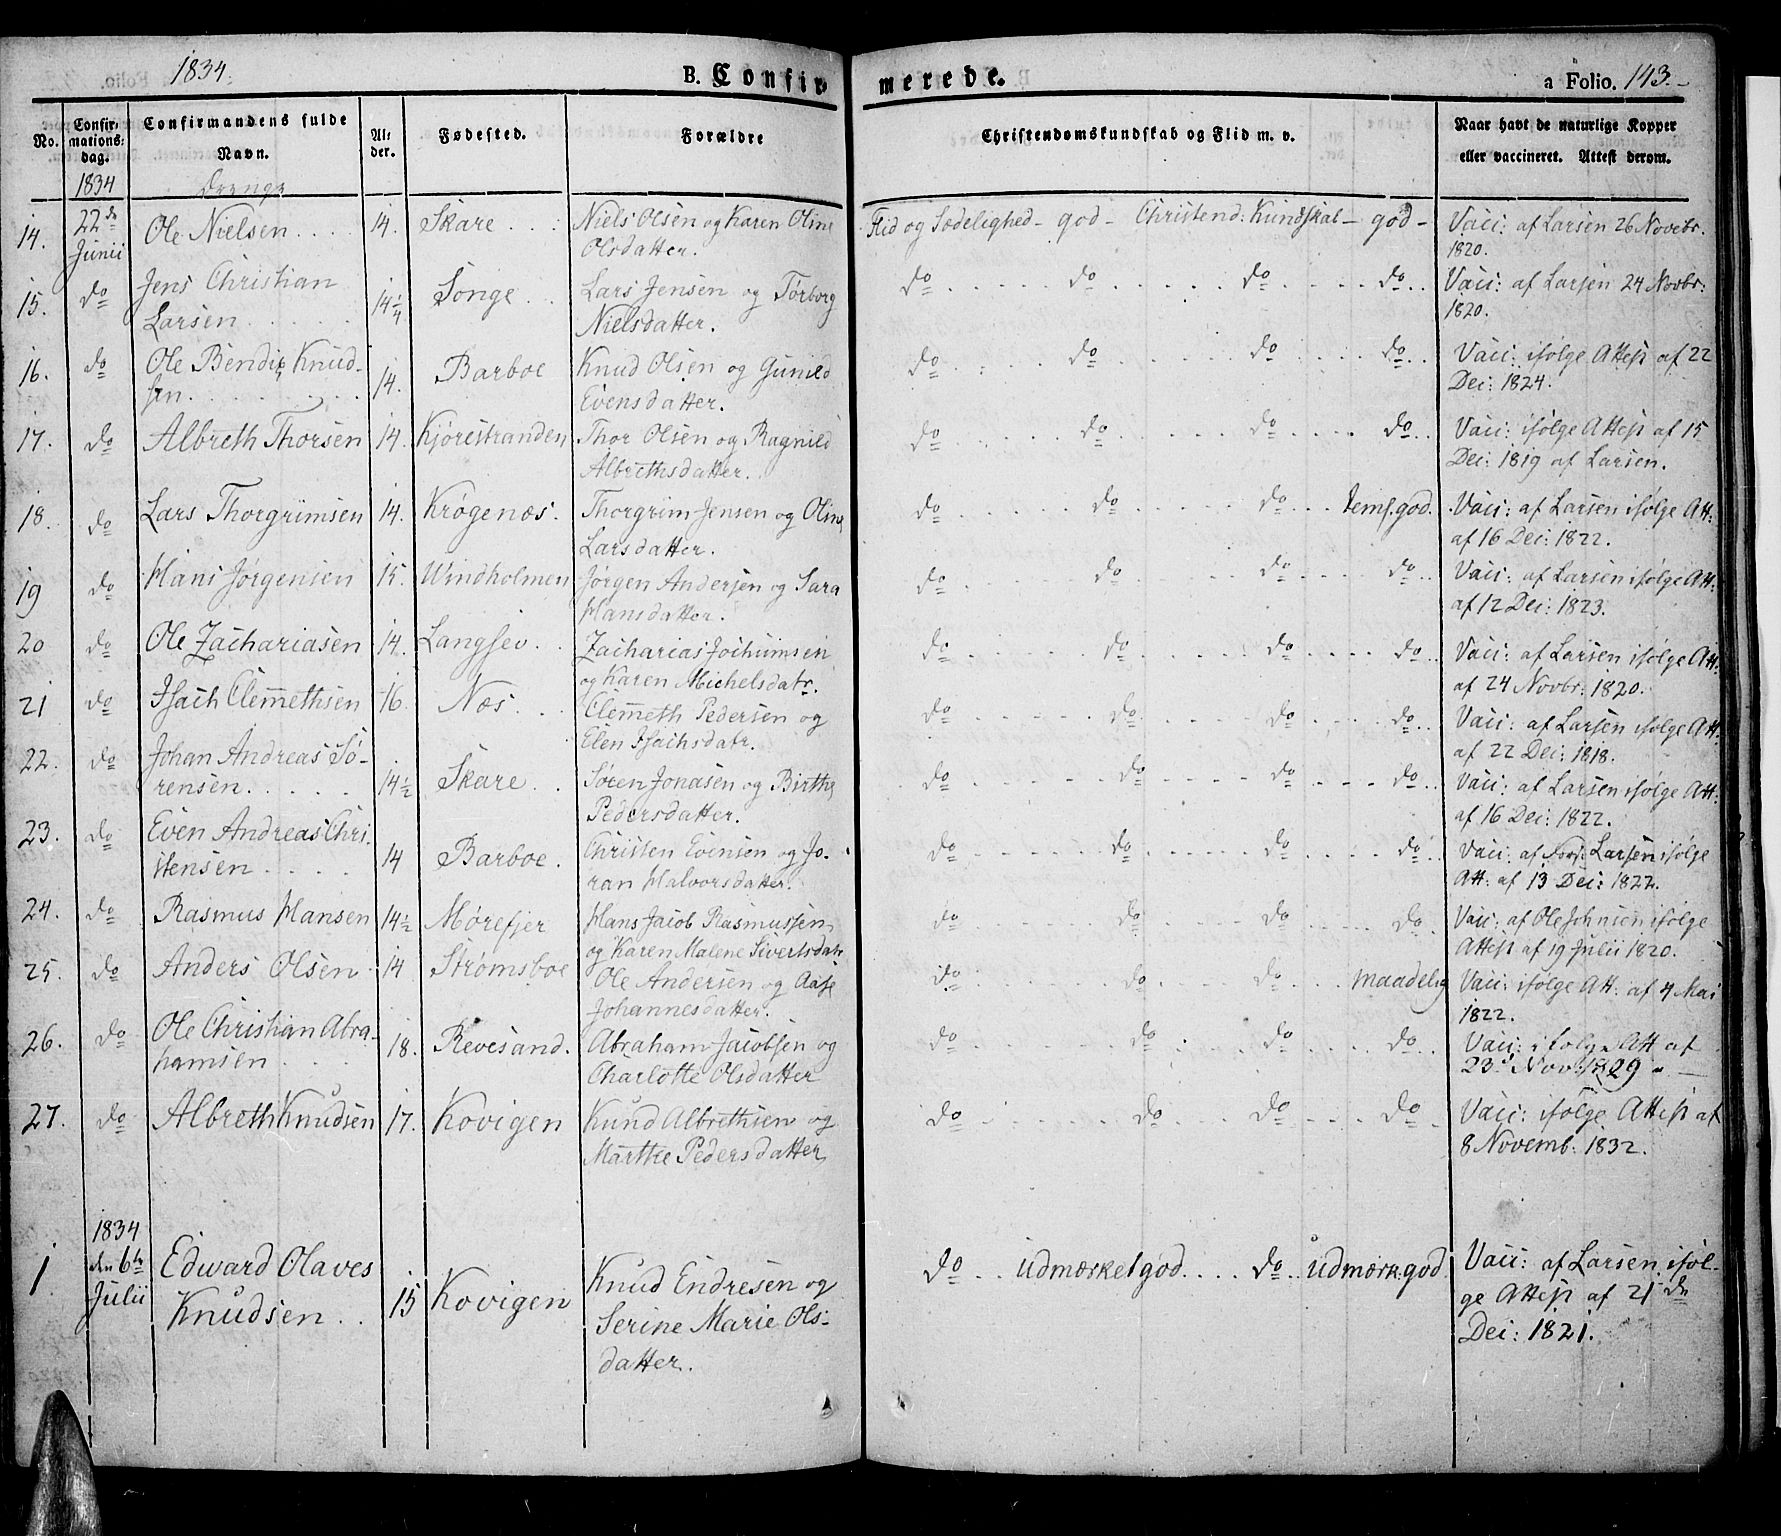 1834. B. Confir- merede. a Folio. 143.
No. Confir-mations-dag. Confirmandens fulde Navn. Al-der. Fødested. Forældre Christendomskundskab og Flid m. v. Naar havt de naturlige Kopper eller vaccineret. Attest derom.
1834 Drenge
14. 22de Junii Ole Nielsen . . . . 14. Skare . . : Niels Olsen og Karen Oline Flid og Sædelighed - god - Christend: Kundskab - god - Vacc: af Larsen 26 Novebr.
Olsdatter. 1820.
15. do Jens Christian 14 1/4 Songe . . Lars Jensen og Torborg do do do do Vacc: af Larsen 24 Novbr:
Larsen Nielsdatter. 1820.
16. do Ole Bendix Knud- 14. Barboe Knud Olsen og Gunild do do do do Vacc: ifølge Attest af 22
sen. Evensdatter. Dec: 1824.
17. do Albreth Thorsen 14. Kjørestranden Thor Olsen og Ragnild do do do do Vacc: ifølge Attest af 15
Albrethsdatter. Dec: 1819 af Larsen.
18. do Lars Thorgrimsen 14. Krøgenæs. Thorgrim Jensen og Oline do do do temf. god. Vacc: af Larsen ifølge Att:
Larsdatter. af 16 Dec: 1822.
19 do Hans Jørgensen 15. Windholmen Jørgen Andersen og Sara do do do do Vacc: af Larsen ifølge Att:
Hansdatter. af 12 Dec: 1823.
20 do Ole Zachariasen 14. Langsev . . Zacharias Jochumsen do do do do Vacc: af Larsen ifølge Att:
og Karen Michelsdatr. af 24 Novbr: 1820.
21 do Isach Clemethsen 16. Næs . . Clemeth Pedersen og do do do do Vacc: af Larsen ifølge Att:
Elen Isachsdatr. af 22 Dec: 1818.
22. do Johan Andreas Sø- 14 1/2 Skare . . Søren Jonasen og Birthe do do do do Vacc: af Larsen ifølge Att:
rensen. Pedersdatter. af 16 Dec: 1822.
23. do Even Andreas Chri- 14 Barboe . Christen Evensen og Jo- do do do do Vacc: af Larsen ifølge
stensen ran Halvorsdatter. Att: af 13 Dec: 1822.
24. do Rasmus Hansen 14 1/2 Mørefjer Hans Jacob Rasmussen do do do do Vacc: af Ole Johnsen ifølge
og Karen Malene Sivertsdatr Attest af 19 Julii 1820.
25. do Anders Olsen 14 Strømsboe Ole Andersen og Aase do do do maadelig Vacc: ifølge Att: af 4 Mai
Johannesdatter. 1822.
26. do Ole Christian Abra- 18. Revesand. Abraham Jacobsen og do do do do Vacc: ifølge Att af
hamsen Charlotte Olsdatter 23d Nov. 1829.
27. do Albreth Knudsen 17. Kovigen Knud Albrethsen og do do do do Vacc: ifølge Attest af
Marthe Pedersdatter 8 Novemb: 1832.
1834
1 den 6te Julii Edward Olaves 15 Kovigen Knud Endresen og do . . udmærket god . . . . do . . udmærk: god Vacc: af Larsen iføl-
Knudsen . . Serine Marie Ols- ge Attest af 21de
datter. Dec: 1821.